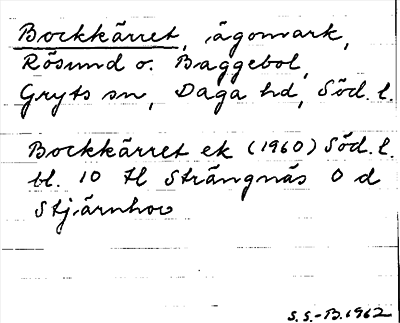 Bockkärret, ägomark,
Rösund o. Baggebol,
Gryts sn, Daga hd, Söd. l.
Bockkärret ek (1960) Söd. l.
bl. 10 tl Strängnäs O d
Stjärnhov
S.S.-B. 1962